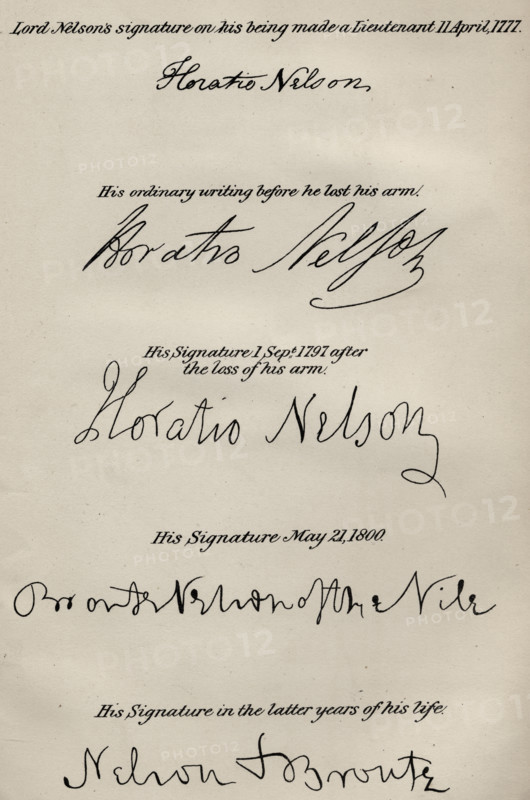 Lord Nelson's signature on his being made a Lieutenant 11 April, 1777.
Horatio Nelson
His ordinary writing before he lost his arm.
Horatio Nelson
His Signature 1, Sept. 1797 after
the loss of his arm.
Horatio Nelson
His Signature May 21, 1800.
Bronte Nelson of the Nile
His Signature in the latter years of his life.
Nelson & Bronte
PHOTO12